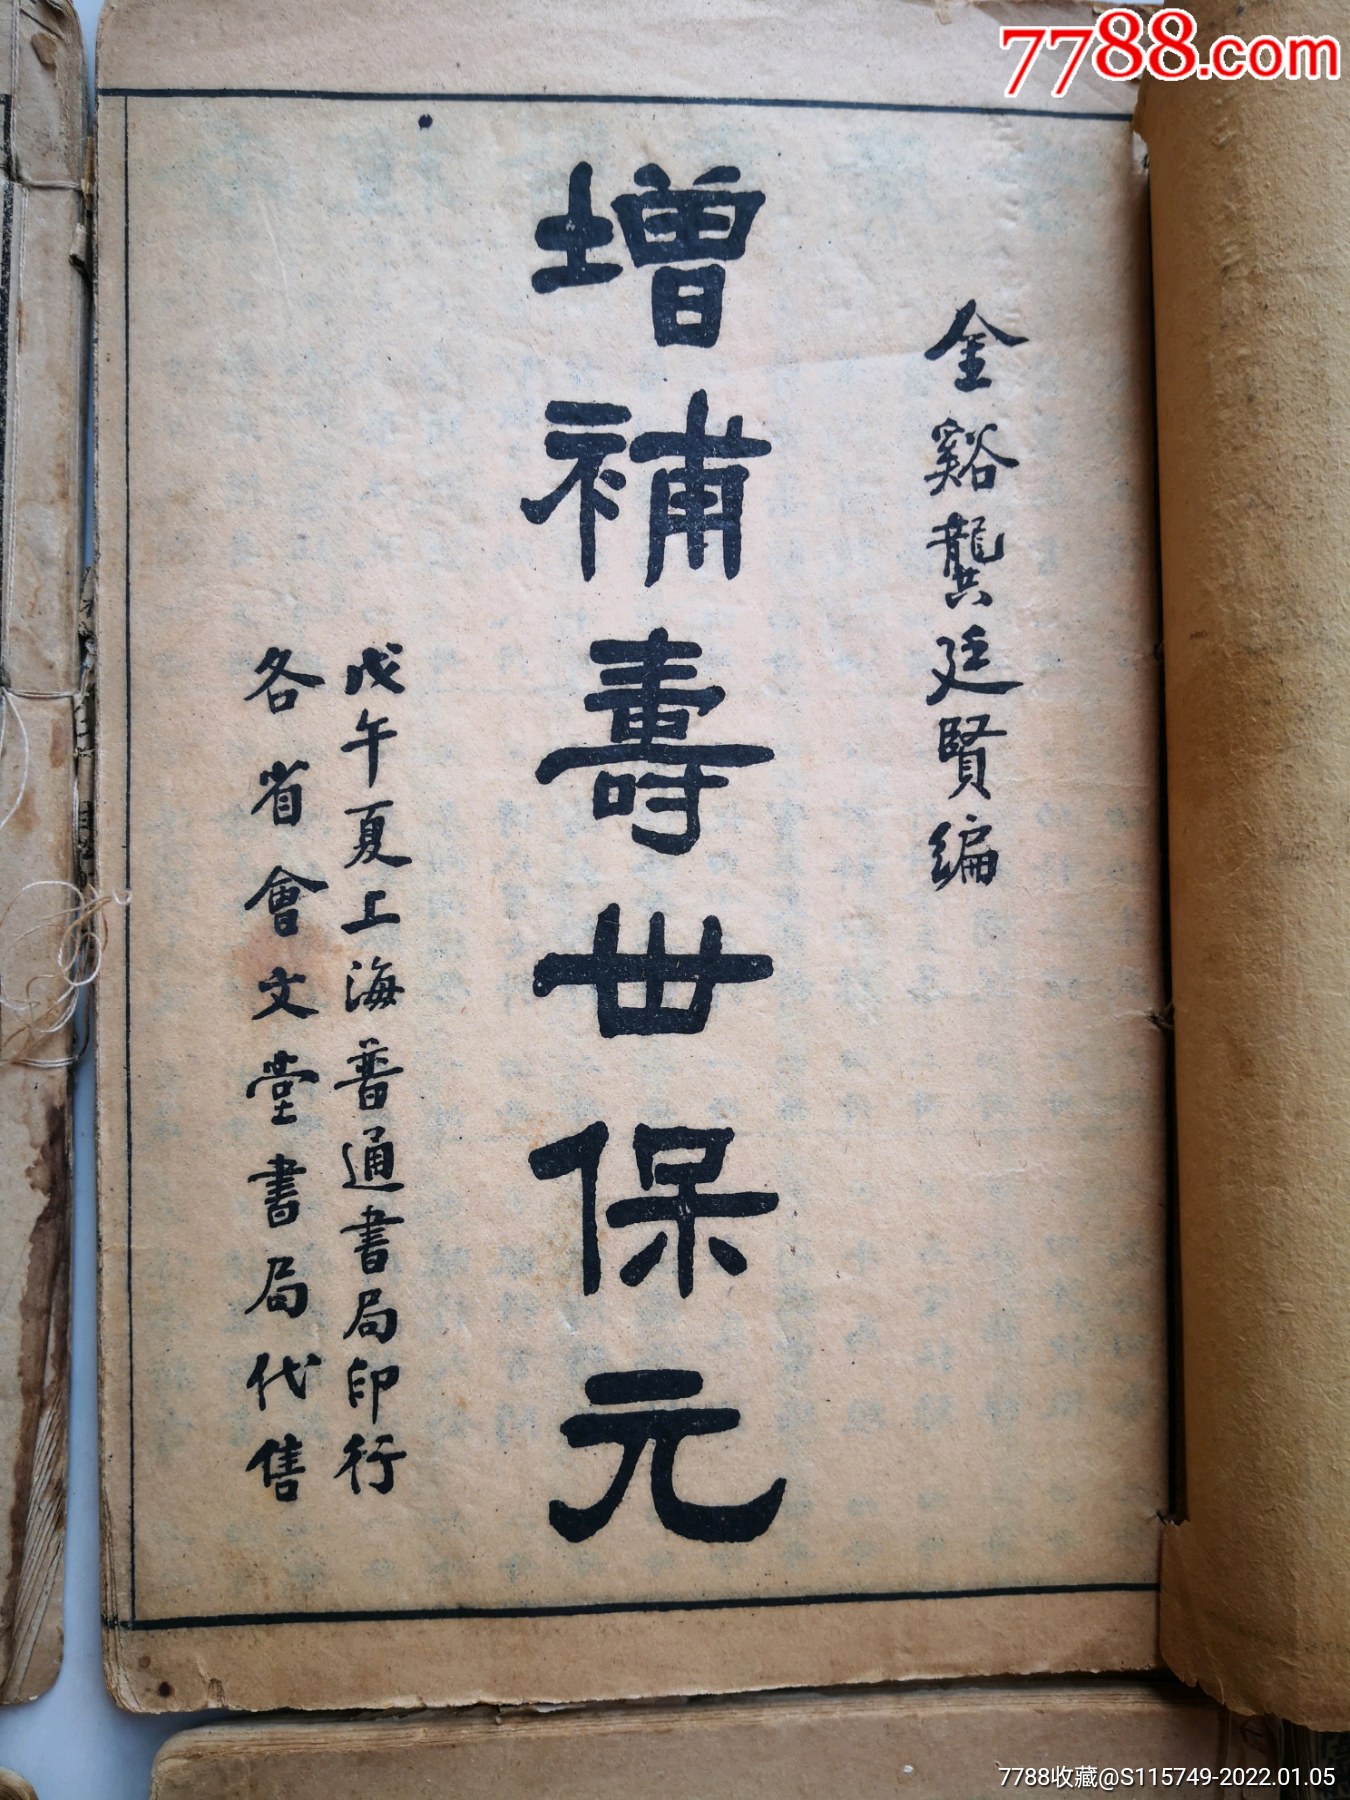 7788.com
金谿龔廷賢編
增補壽世保元
戊午夏上海普通書局印行
各省會文堂書局代售
7788收藏@S115749-2022.01.05